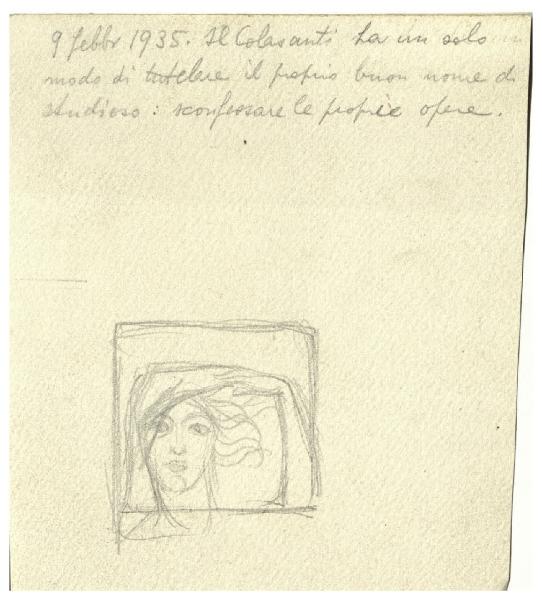 9 febbr 1935. Il Colasanti ha un solo
modo di tutelare il proprio buon nome di
studioso: sconfessare le proprie opere.